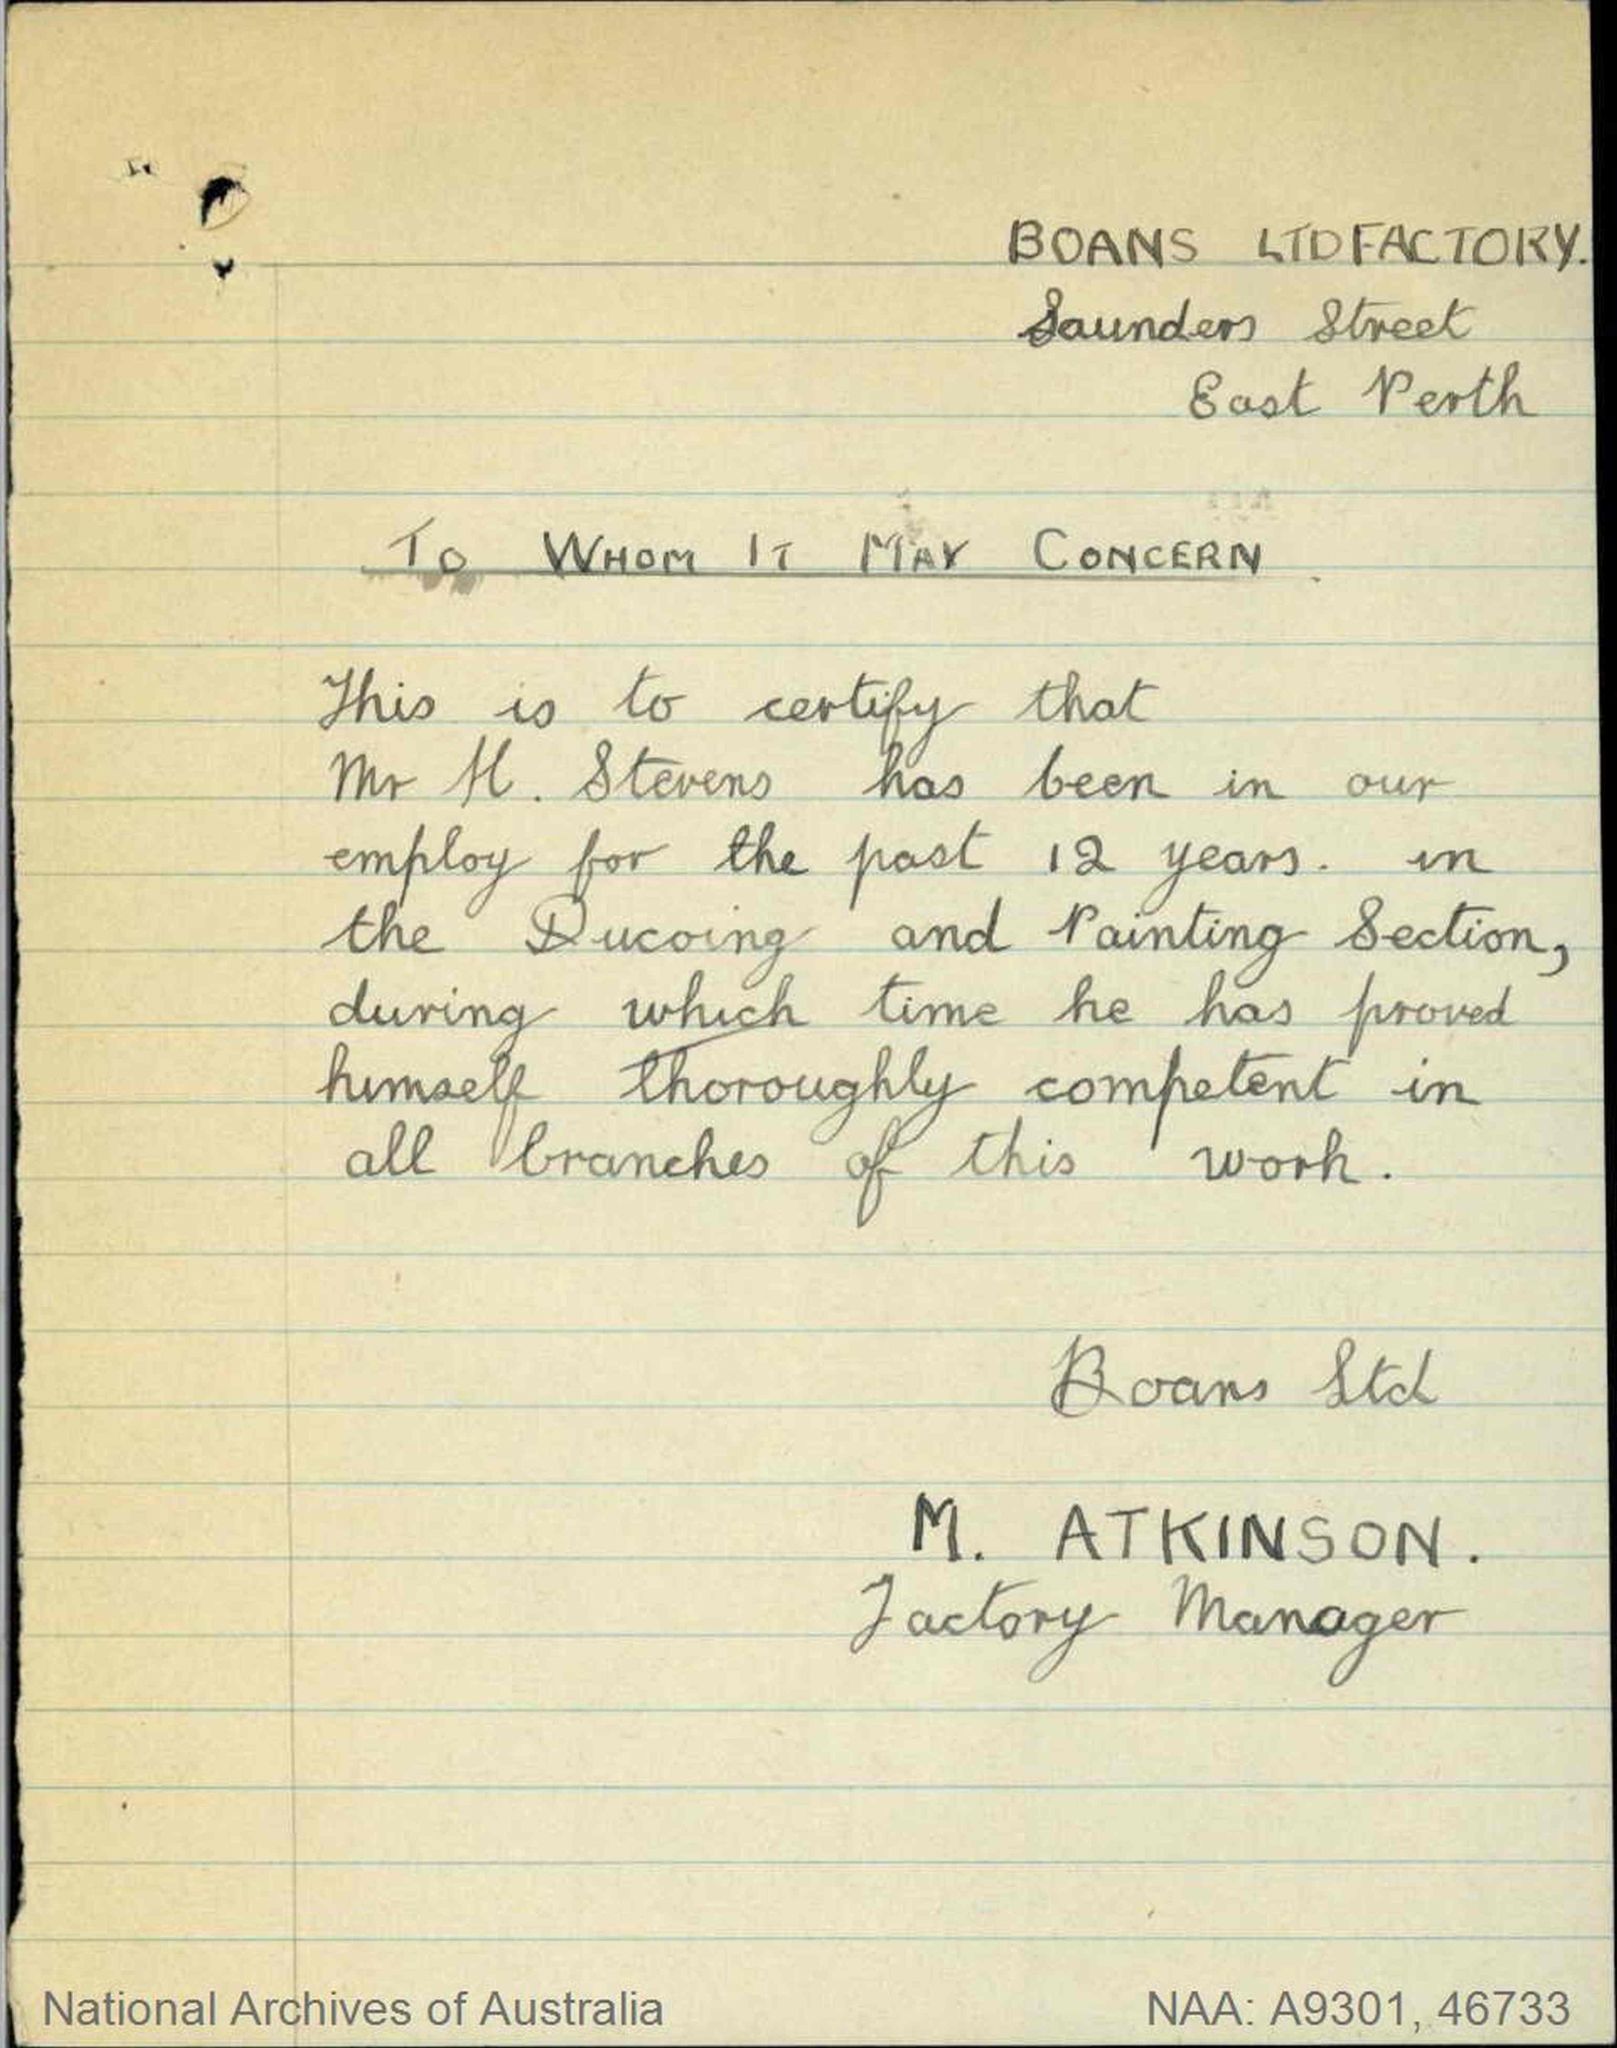 BOANS LTD FACTORY.
Saunders Street
East Perth
To Whom It May Concern
This is to certify that
Mr H. Stevens has been in our
employ for the past 12 years. in
the Ducoing and Painting Section,
during which time he has proved
himself thoroughly competent in
all branches of this work.
Boans Ltd
M. ATKINSON.
Factory Manager
National Archives of Australia
NAA: A9301, 46733